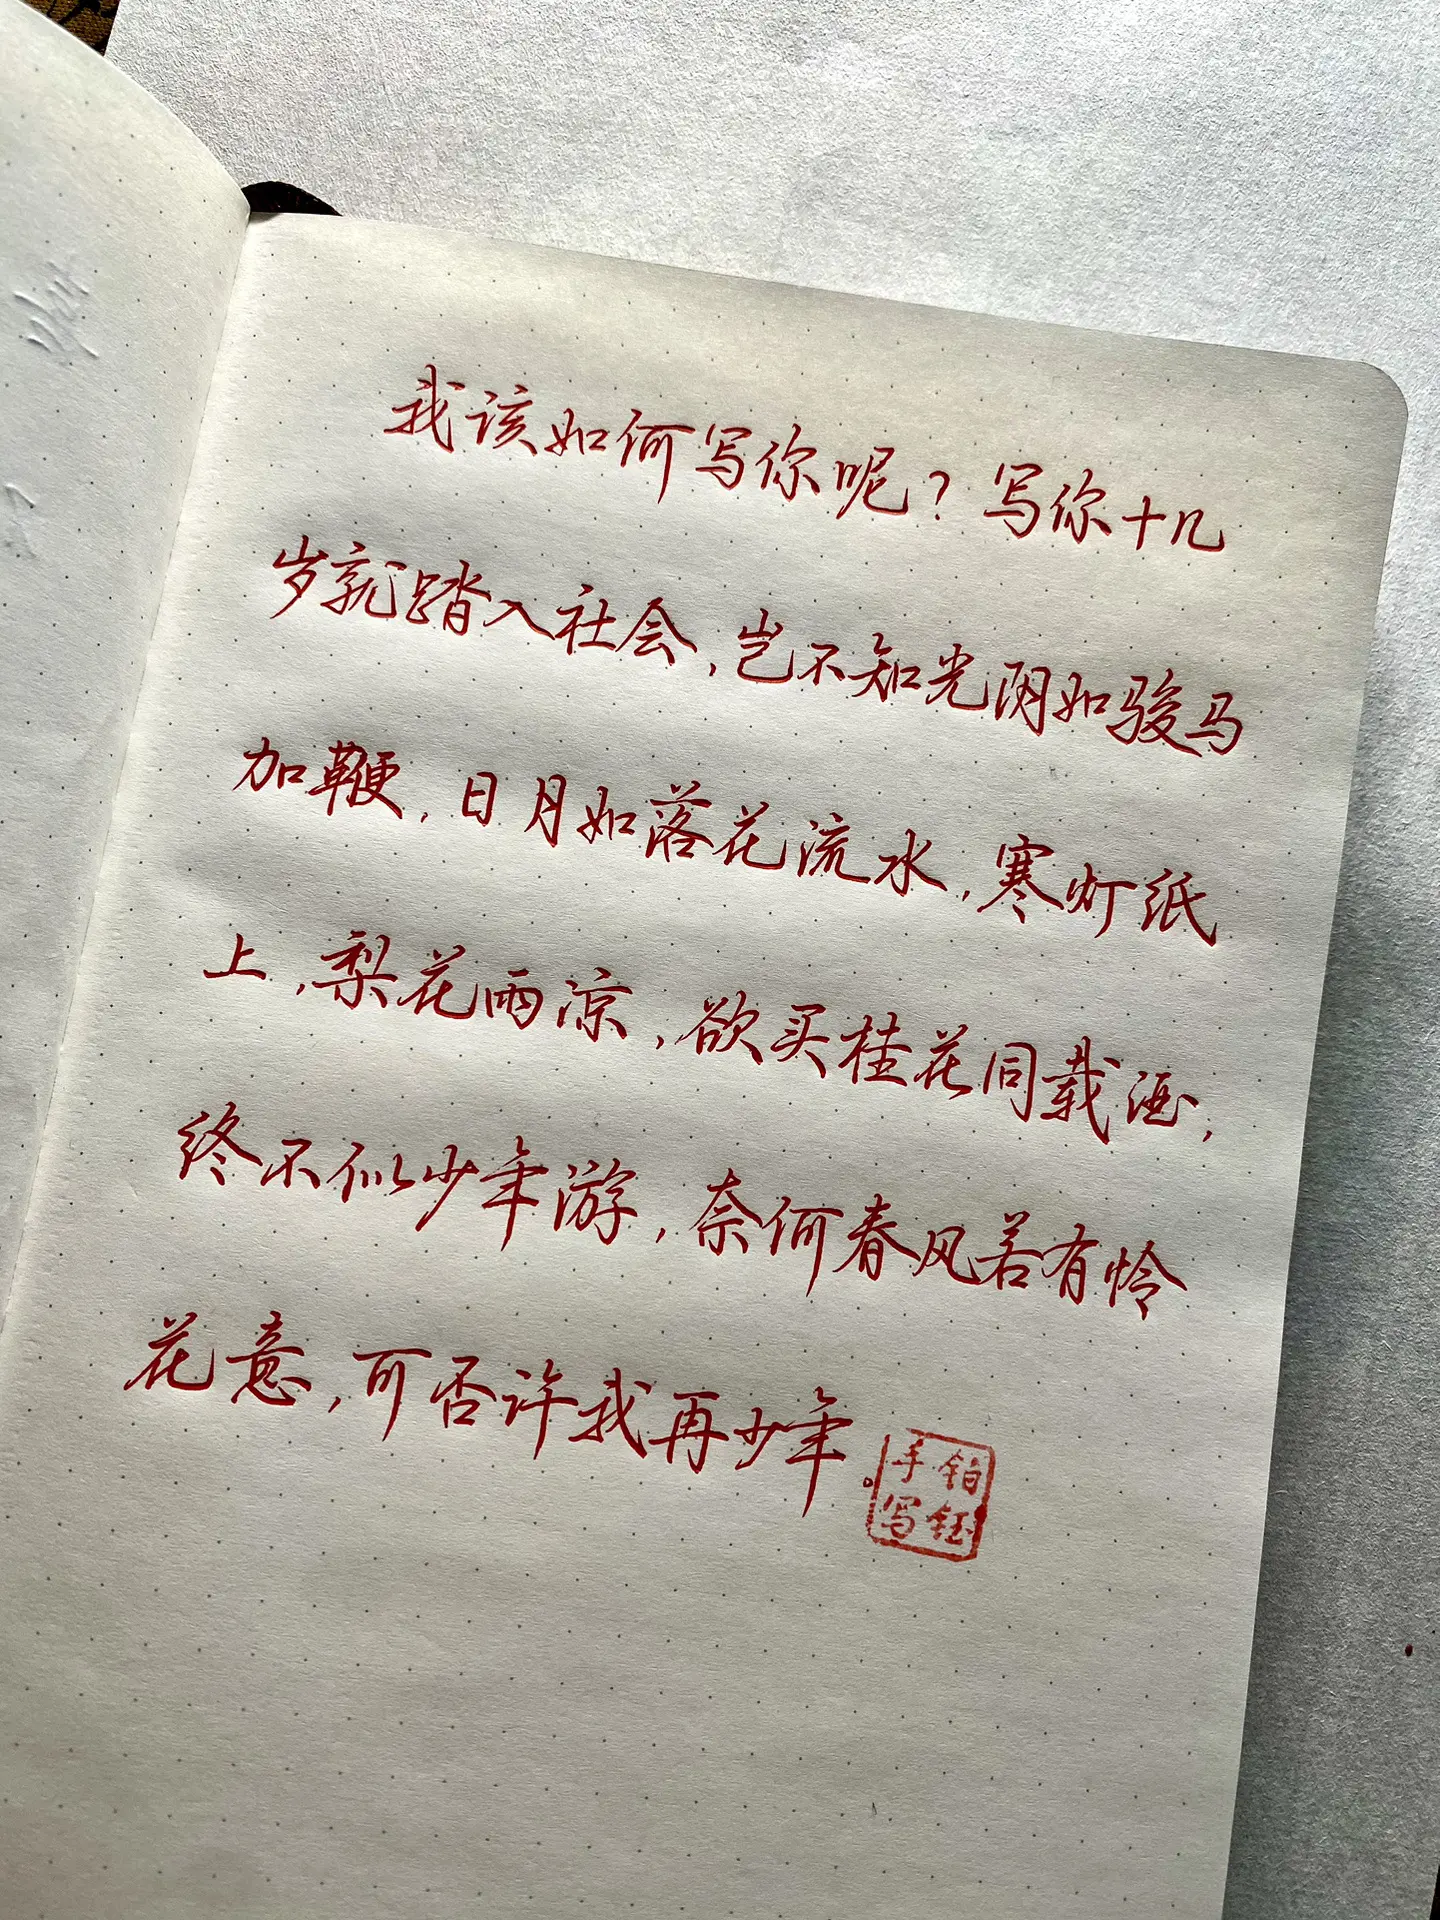 我该如何写你呢？写你十几
岁就踏入社会，岂不知光阴如骏马
加鞭，日月如落花流水，寒灯纸
上，梨花雨凉，欲买桂花同载酒，
终不似少年游，奈何春风若有怜
花意，可否许我再少年。
铂钰
手写